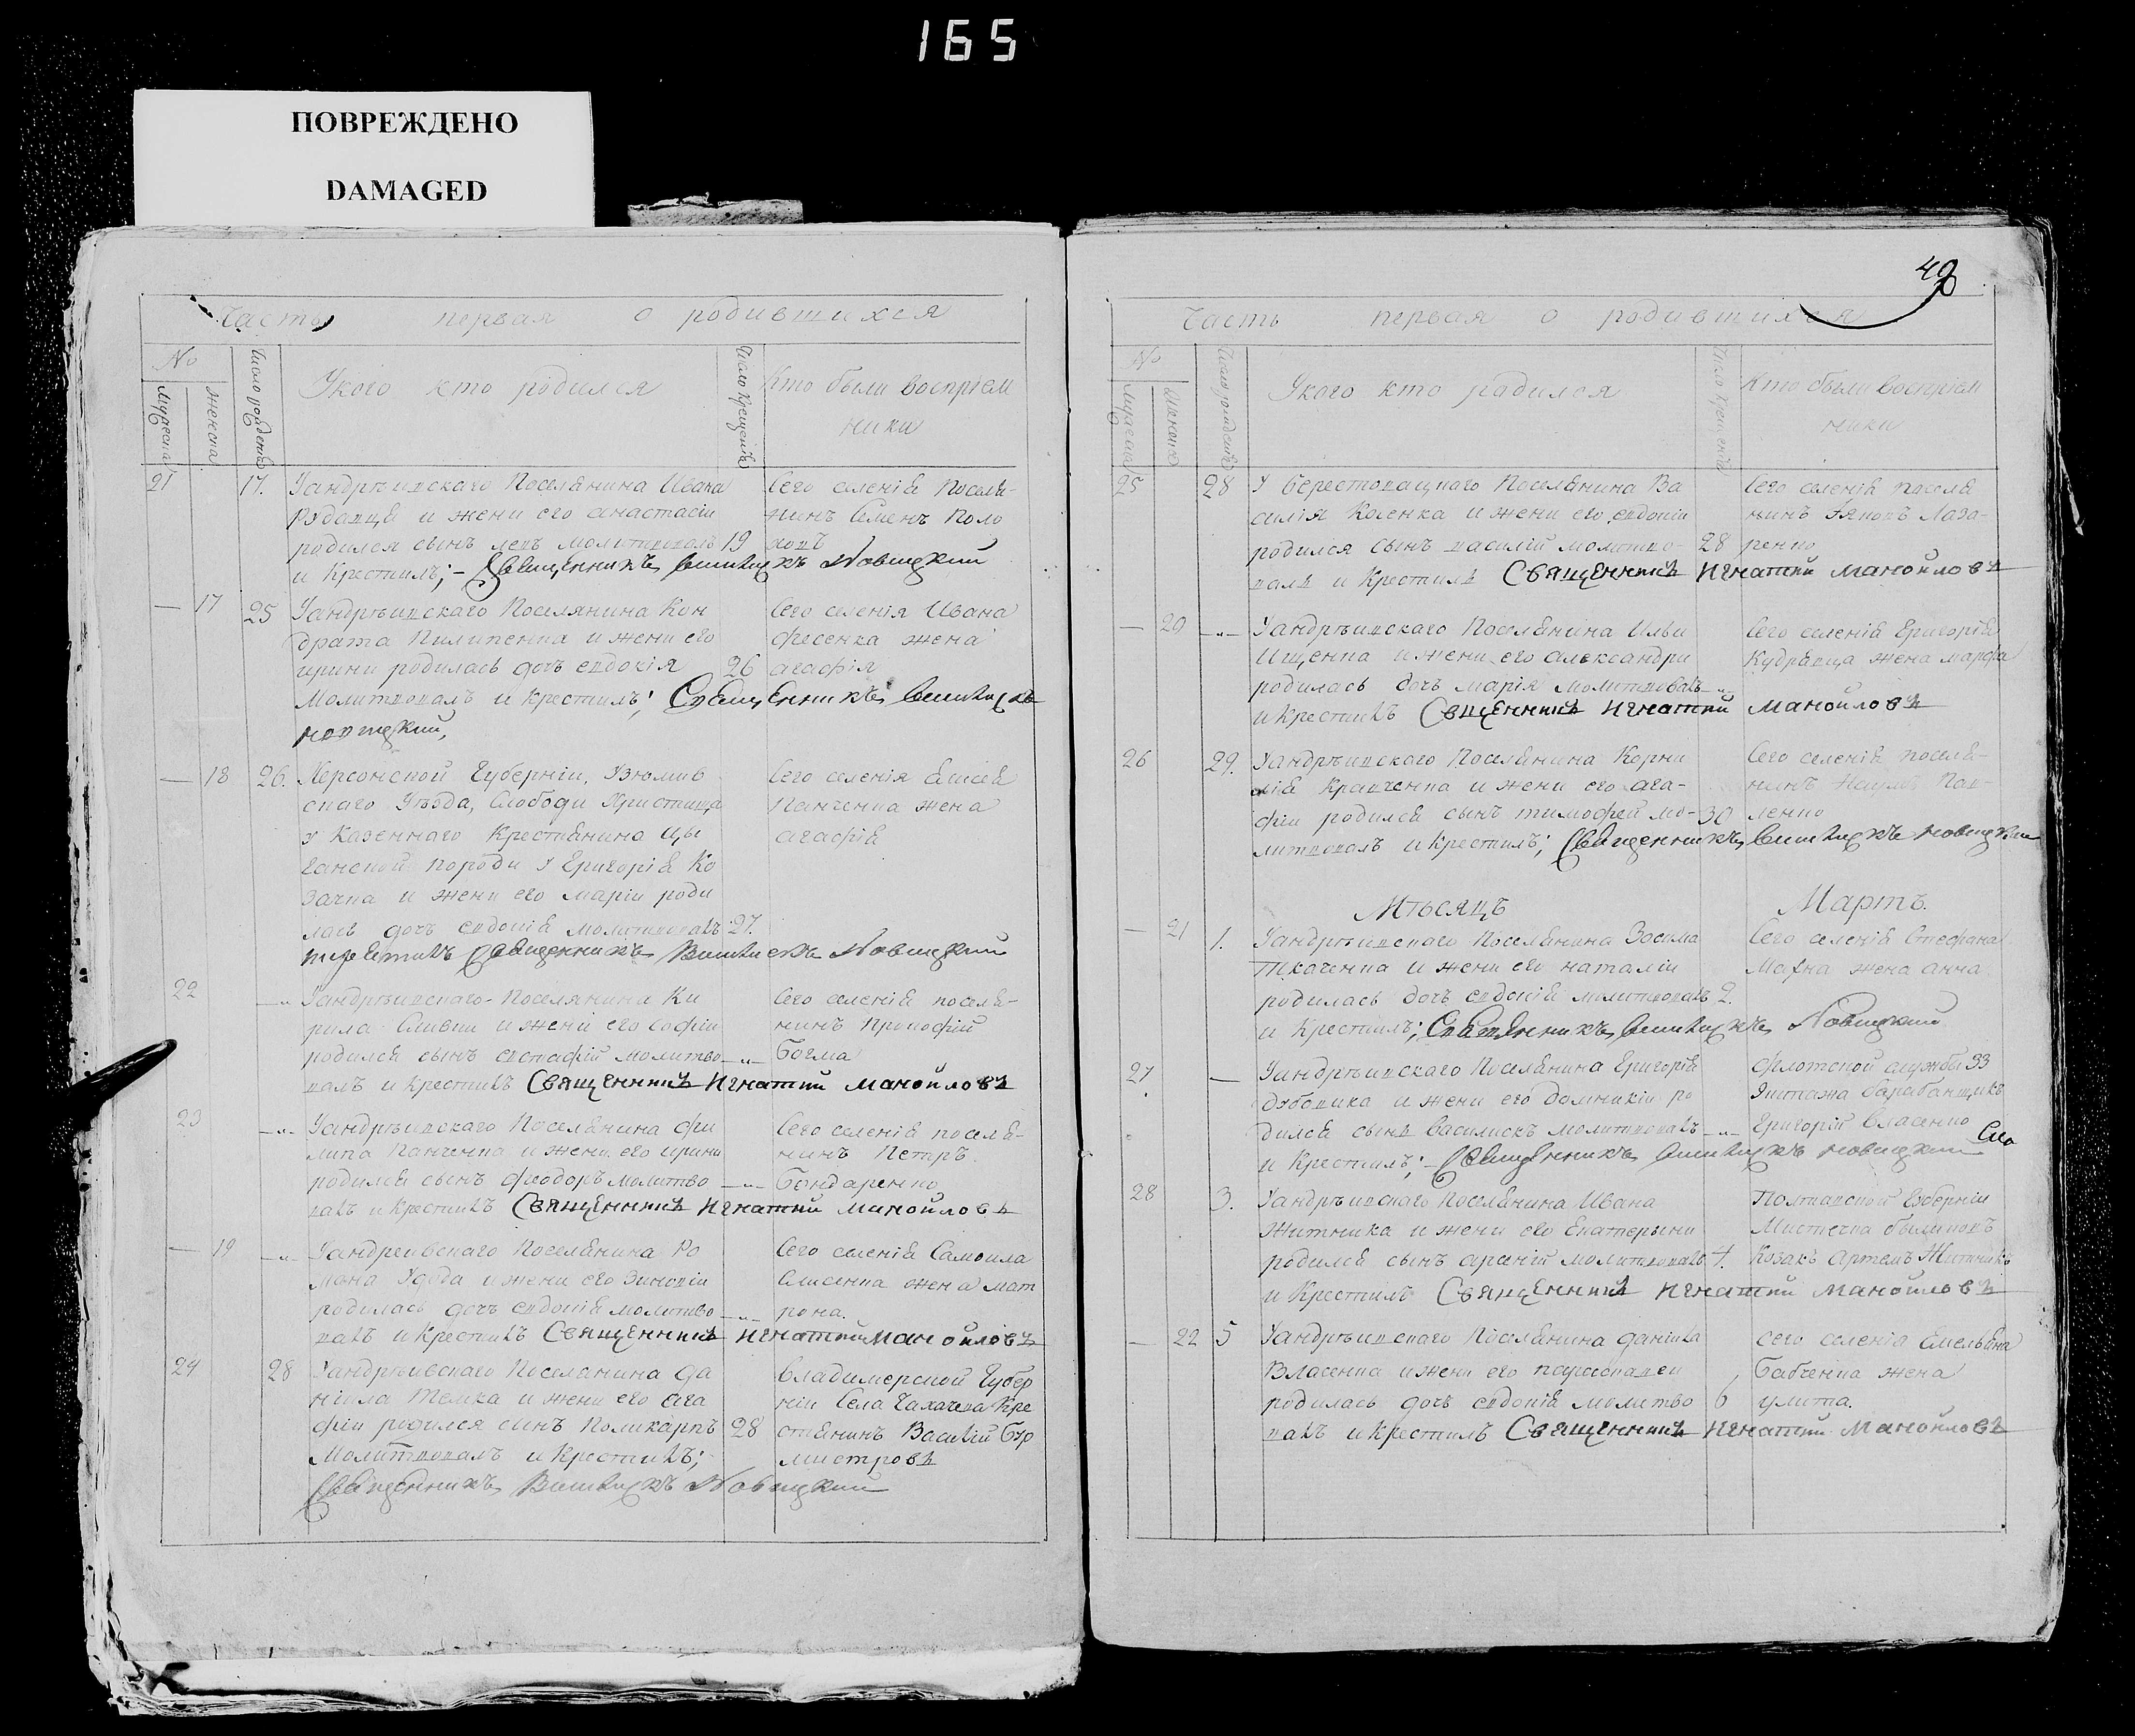 165
ПОВРЕЖДЕНО
DAMAGED
Часть первая о родившихся
№
Мужеска
Женска
Число рождения
У кого кто родился
Число Крещения
Кто были восприем
ники
21 17. Уандрѣивскаго Поселянина Ивана
Рудавця и жени его анастасіи
родился сынъ левъ молитвовалъ 19
и Крестилъ; – Священникъ Викентій Новицкий
Сего селенія Поселя-
нинъ Семенъ Поло
— 17 25 Уандрѣивскаго Поселянина Кон
драта Пилипенка и жени его
ирини родилась дочь евдокія 26
Молитвовалъ и крестилъ; Священникъ
новицкий,
Сего селенія Ивана
фесенка жена
агафія
— 18 26. Херсонской Губерніи, Узюмив
скаго Уѣзда, Слободи Христища
у Казенного Крестянина Цы
ганской породи у Григорія Ко
зачка и жени его маріи роди
лась дочь евдокія молитвовалъ 27.
Священникъ Новицкий
Сего селенія Елисея
Панченка жена
агафія
22 —„— Уандрѣивскаго Поселянина Ки
рила Сливки и жени его софіи
родился сынъ евстафій молитво —„—
валъ и крестилъ Священникъ Игнатий Манойловъ
Сего селенія поселя-
нинъ Прокофій
Богма
23 —„— Уандрѣивскаго Поселянина фи
липа Панченка и жени его ирини
родился сынъ феодоръ молитво —„—
валъ и крестилъ Священникъ Игнатий Манойловъ
Сего селенія поселя-
нинъ Петръ
Бондаренко
— 19 —„— Уандреивскаго Поселянина Ро
мана Удода и жени его Зиновіи
родилась дочь евдокія молитво —„—
валъ и крестилъ Священникъ Игнатий Манойловъ
Сего селенія Самоила
Слисенка жена мат
рона.
24 28 Уандрѣивскаго Поселянина Да
ніила Темка и жени его ага
фіи родился синъ Поликарпъ 28
Молитвовалъ и Крестилъ;
Священникъ Новицкий
Владимерской Губер
ніи Села Чахачева Кре
стянинъ Василій Бур
мистровъ
49
Часть первая о родившихся
№
Мужеска
Женска
Число рождения
У кого кто родился
Число Крещения
Кто были восприем
ники
25 28 У берестоващкаго Поселянина Ва
силія Коленка и жени его евдокіи
родился сынъ василій молитво- 28
валъ и Крестилъ Священникъ Игнатий Манойловъ
Сего селенія поселя
нинъ Яковъ Лаза-
ренко
— 20 —„— Уандрѣивскаго Поселянина Ильи
Ищенка и жени его александри
родилась дочь марія молитвовалъ —„—
и Крестилъ Священникъ Игнатий Манойловъ
Сего селенія Григорія
Кудравца жена марфа
26 29. Уандрѣивскаго Поселянина Корни
лія Кравченка и жени его ага-
фіи родился сынъ тимофей мо- 30
литвовалъ и Крестилъ; Священникъ Новицкий
Сего селенія поселя-
нинъ Наумъ Пав-
ленко
Мѣсяцъ Мартъ.
— 21 1. Уандрѣивскаго Поселянина Зосима
Ткаченка и жени его наталіи
родилась дочь евдокія молитвовалъ 2.
и Крестилъ; Священникъ Новицкий
Сего селенія Стефана
Махна жена анна
27 — Уандрѣивскаго Поселянина Григорія
Дубовика и жени его домникіи ро
дился сынъ Василискъ молитвовалъ —„—
и Крестилъ; – Священникъ Новицкий
флотской службы 33
Экипажа барабанщикъ
Григорій Власенко
28 3. Уандрѣивскаго Поселянина Ивана
Житника и жени его Екатерыни
родился сынъ арсеній молитвовалъ 4.
и Крестилъ Священникъ Игнатий Манойловъ
Полтавской Губерніи
Козакъ Артемъ Житникъ
— 22 5 Уандрѣивскаго Поселянина даніила
Власенка и жени его
родилась дочь евдокія молитво 6
валъ и Крестилъ Священникъ Игнатий Манойловъ
сего селенія Емельяна
Бабченка жена
улита.